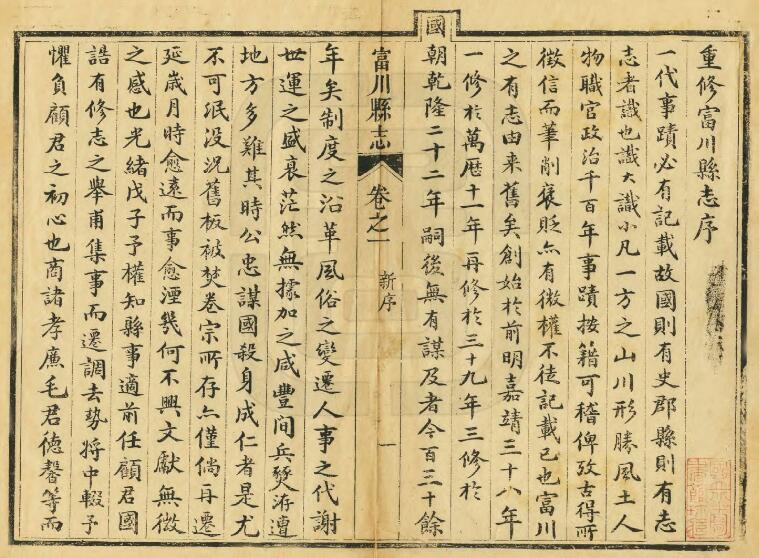 重修富川縣志序
一代事蹟必有記載故國則有史郡縣則有志
志者識也識大識小凡一方之山川形勝風土人
物職官政治千百年事蹟按籍可稽俾攷古得所
徵信而筆削褒貶亦有微權不徒記載已也富川
之有志由来舊矣創始於前明嘉靖三十八年
一修於萬曆十一年再修於三十九年三修於
國
朝乾隆二十二年嗣後無有謀及者今百三十餘
富川縣志
卷之一
新序
一
年矣制度之沿革風俗之變遷人事之代謝
世運之盛衰茫然無據加之咸豐間兵燹洊遭
地方多難其時公忠謀國殺身成仁者是尤
不可泯没況舊板被焚卷宗所存亦僅倘再遷
延歲月時愈遠而事愈湮幾何不興文獻無徵
之感也光緒戊子予權知縣事適前任顧君國
誥有修志之舉甫集事而遷調去勢將中輟予
懼負顧君之初心也商諸孝廉毛君德馨等而